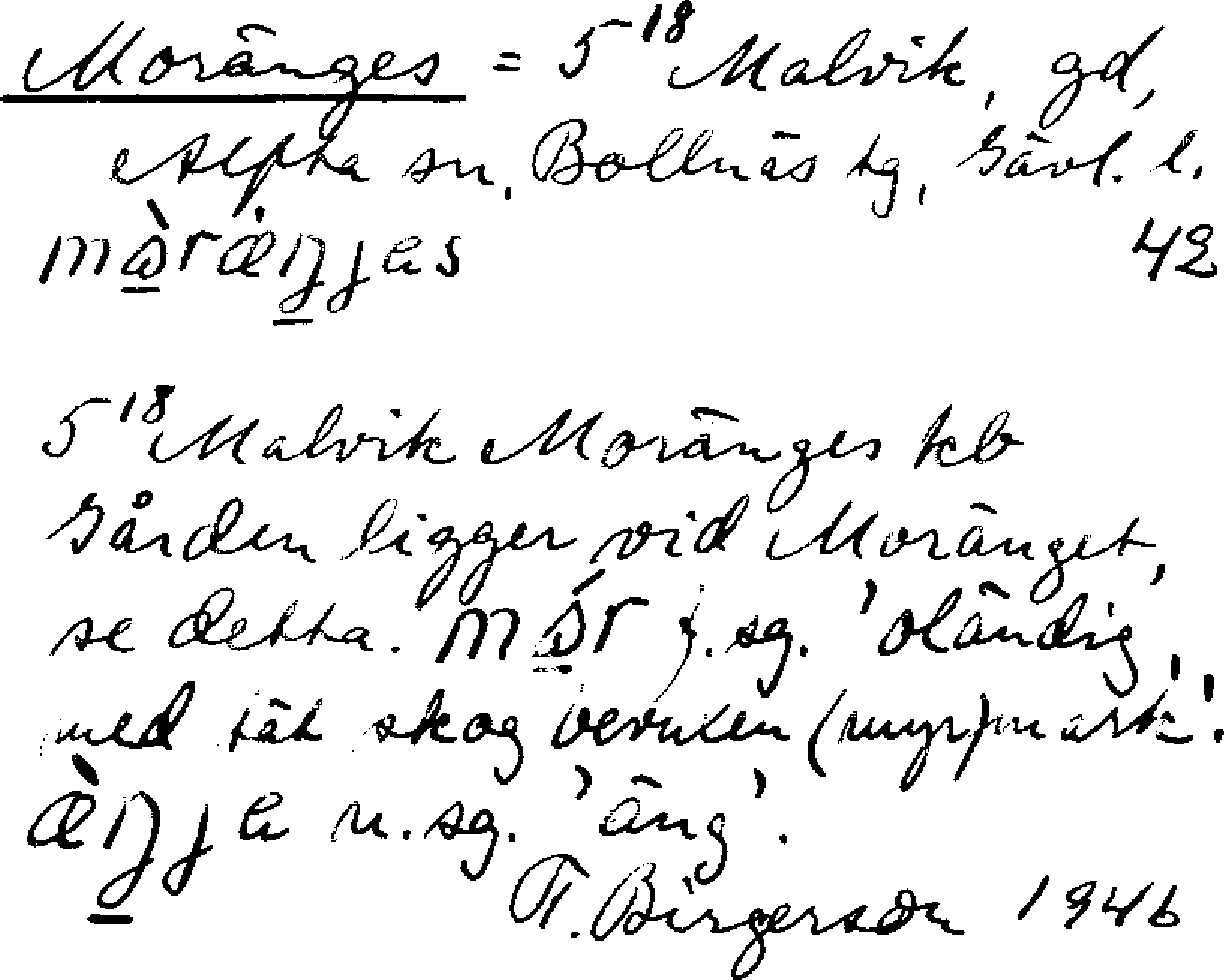 Moränges = 5¹⁸ Malvik, gd,
Alfta sn, Bollnäs tg, Gävl. l.
42
5¹⁸ Malvik Moränges kb
Gården ligger vid Moränget,
se detta. f. sg. 'oländig,
med tät skog bevuxen (myr)mark'.
n. sg. 'äng'.
F. Birgerson 1946